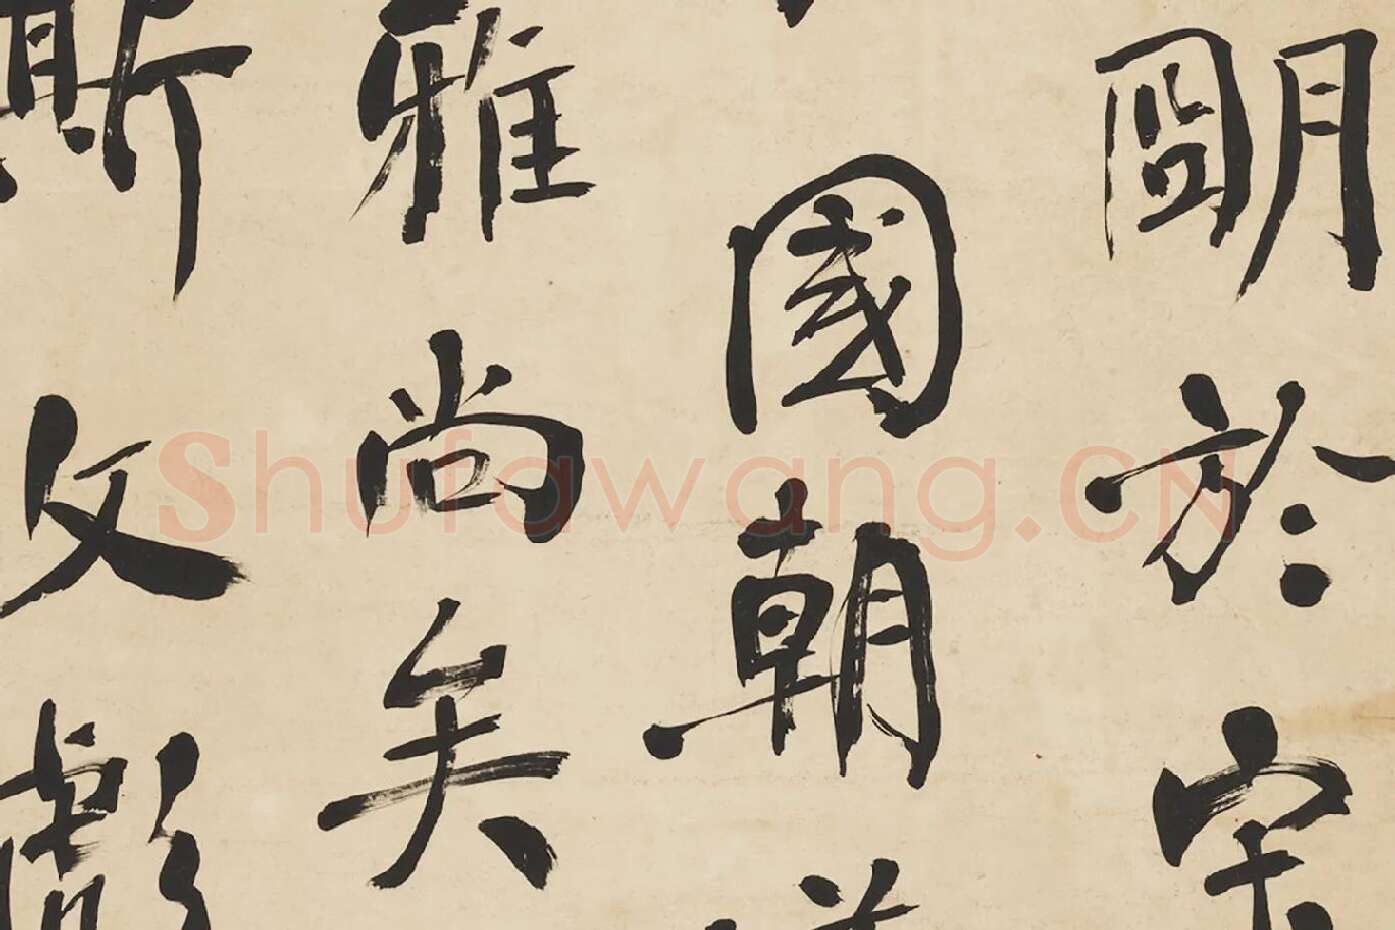 明於宋
國朝
雅尚矣
斯文
Shufawang.CN